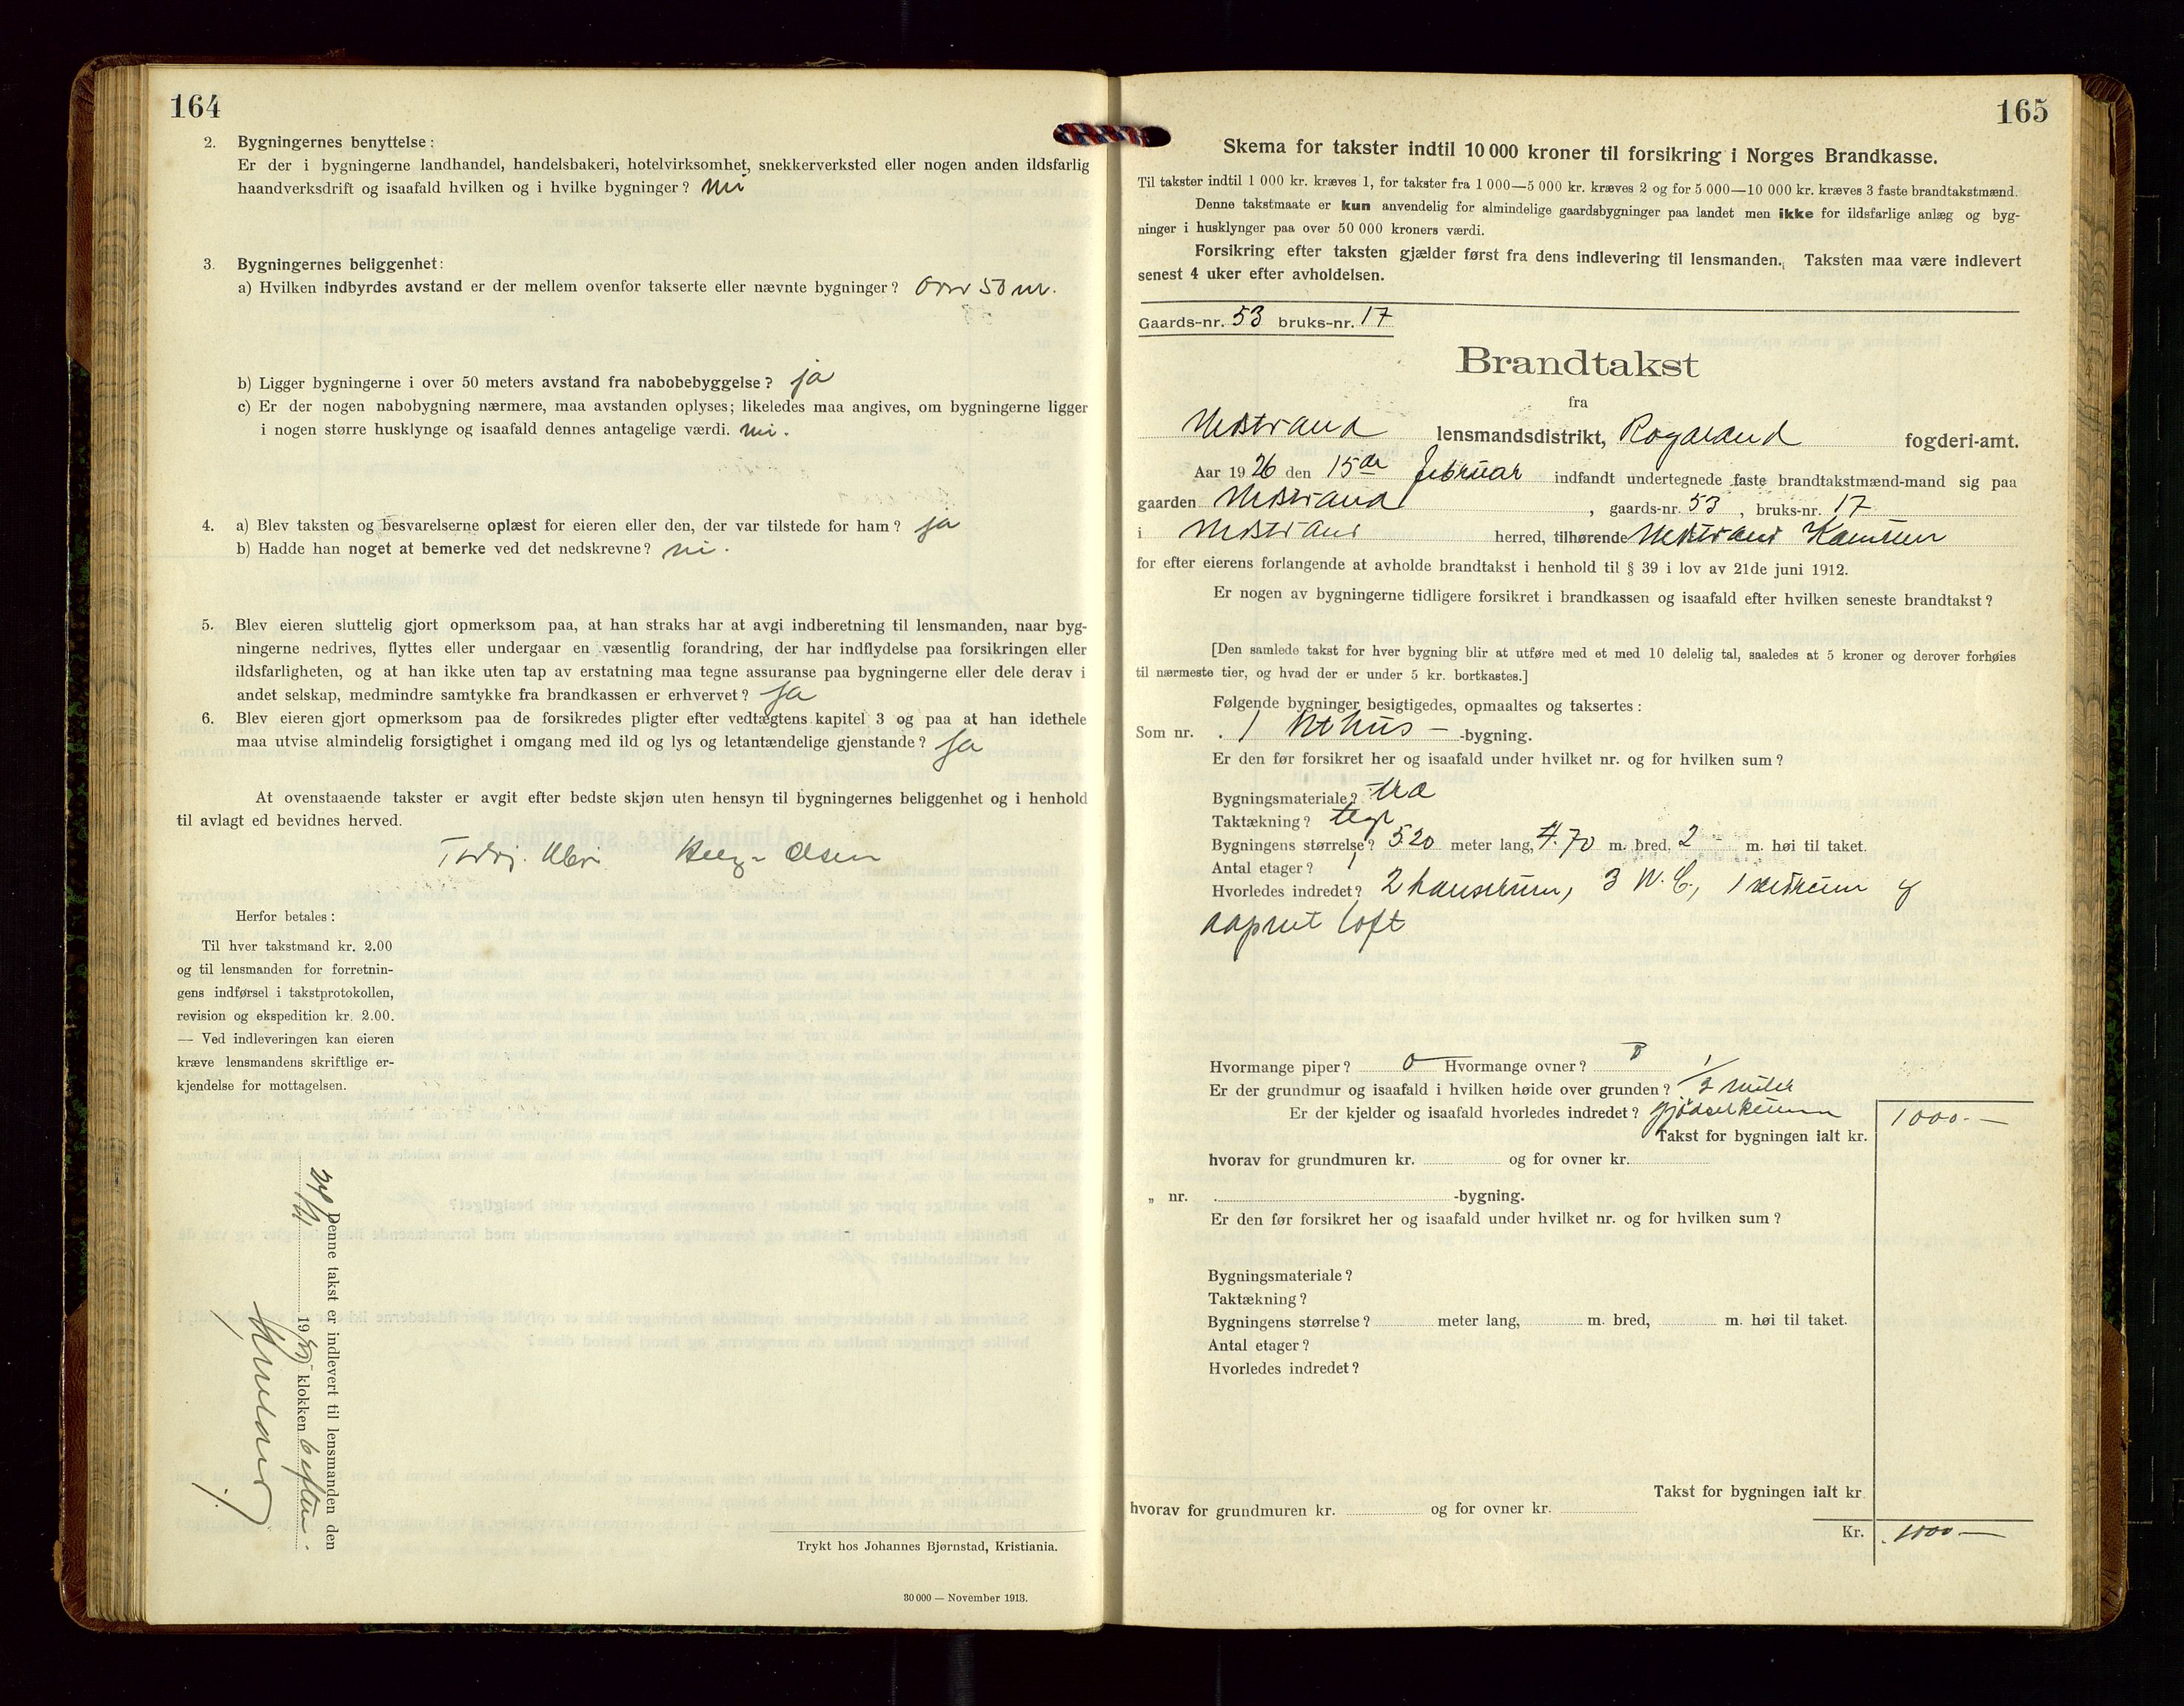 164
2. Bygningernes benyttelse:
Er der i bygningerne landhandel, handelsbakeri, hotelvirksomhet, snekkerverksted eller nogen anden ildsfarlig
haandverksdrift og isaafald hvilken og i hvilke bygninger? nei
3. Bygningernes beliggenhet:
a) Hvilken indbyrdes avstand er der mellem ovenfor takserte eller nævnte bygninger? Over 50 m.
b) Ligger bygningerne i over 50 meters avstand fra nabobebyggelse? ja
c) Er der nogen nabobygning nærmere, maa avstanden oplyses; likeledes maa angives, om bygningerne ligger
i nogen større husklynge og isaafald dennes antagelige værdi. nei.
4. a) Blev taksten og besvarelserne oplæst for eieren eller den, der var tilstede for ham? ja
b) Hadde han noget at bemerke ved det nedskrevne? nei.
5. Blev eieren sluttelig gjort opmerksom paa, at han straks har at avgi indberetning til lensmanden, naar byg-
ningerne nedrives, flyttes eller undergaar en væsentlig forandring, der har indflydelse paa forsikringen eller
ildsfarligheten, og at han ikke uten tap av erstatning maa tegne assuranse paa bygningerne eller dele derav i
andet selskap, medmindre samtykke fra brandkassen er erhvervet? Ja
6. Blev eieren gjort opmerksom paa de forsikredes pligter efter vedtægtens kapitel 3 og paa at han idethele
maa utvise almindelig forsigtighet i omgang med ild og lys og letantændelige gjenstande? Ja
At ovenstaaende takster er avgit efter bedste skjøn uten hensyn til bygningernes beliggenhet og i henhold
til avlagt ed bevidnes herved.
Olsen
Herfor betales:
Til hver takstmand kr. 2.00
og til lensmanden for forretnin-
gens indførsel i takstprotokollen,
revision og ekspedition kr. 2.00.
— Ved indleveringen kan eieren
kræve lensmandens skriftlige er-
kjendelse for mottagelsen.
Denne takst er indlevert til lensmanden den
19 klokken 6 eftm.
Trykt hos Johannes Bjørnstad, Kristiania.
30 000 — November 1913.
165
Skema for takster indtil 10 000 kroner til forsikring i Norges Brandkasse.
Til takster indtil 1 000 kr. kræves 1, for takster fra 1 000—5 000 kr. kræves 2 og for 5 000—10 000 kr. kræves 3 faste brandtakstmænd.
Denne takstmaate er kun anvendelig for almindelige gaardsbygninger paa landet men ikke for ildsfarlige anlæg og byg-
ninger i husklynger paa over 50 000 kroners værdi.
Forsikring efter taksten gjælder først fra dens indlevering til lensmanden. Taksten maa være indlevert
senest 4 uker efter avholdelsen.
Gaards-nr. 53 bruks-nr. 17
Brandtakst
fra
Nedstrand lensmandsdistrikt, Rogaland fogderi-amt.
Aar 1926 den 15de februar indfandt undertegnede faste brandtakstmænd-mand sig paa
gaarden Nedstrand, gaards-nr. 53, bruks-nr. 17
i Nedstrand herred, tilhørende Nedstrand Komune
for efter eierens forlangende at avholde brandtakst i henhold til § 39 i lov av 21de juni 1912.
Er nogen av bygningerne tidligere forsikret i brandkassen og isaafald efter hvilken seneste brandtakst?
[Den samlede takst for hver bygning blir at utføre med et med 10 delelig tal, saaledes at 5 kroner og derover forhøies
til nærmeste tier, og hvad der er under 5 kr. bortkastes.]
Følgende bygninger besigtigedes, opmaaltes og taksertes:
Som nr. 1 Uthus -bygning.
Er den før forsikret her og isaafald under hvilket nr. og for hvilken sum?
Bygningsmateriale? træ
Taktækning? tegl
Bygningens størrelse? 5.20 meter lang, 4.70 m. bred, 2 - m. høi til taket.
Antal etager? 1
Hvorledes indredet? 2 3 W. C., 1 vedrum og
aapent loft
Hvormange piper? 0 Hvormange ovner? 0
Er der grundmur og isaafald i hvilken høide over grunden? 1/2 meter
Er der kjelder og isaafald hvorledes indredet? gjødselkum
Takst for bygningen ialt kr. 1000.-
hvorav for grundmuren kr. og for ovner kr.
„ nr. -bygning.
Er den før forsikret her og isaafald under hvilket nr. og for hvilken sum?
Bygningsmateriale?
Taktækning?
Bygningens størrelse? meter lang, m. bred, m. høi til taket.
Antal etager?
Hvorledes indredet?
Takst for bygningen ialt kr
hvorav for grundmuren kr. og for ovner kr.
Kr. 1000-